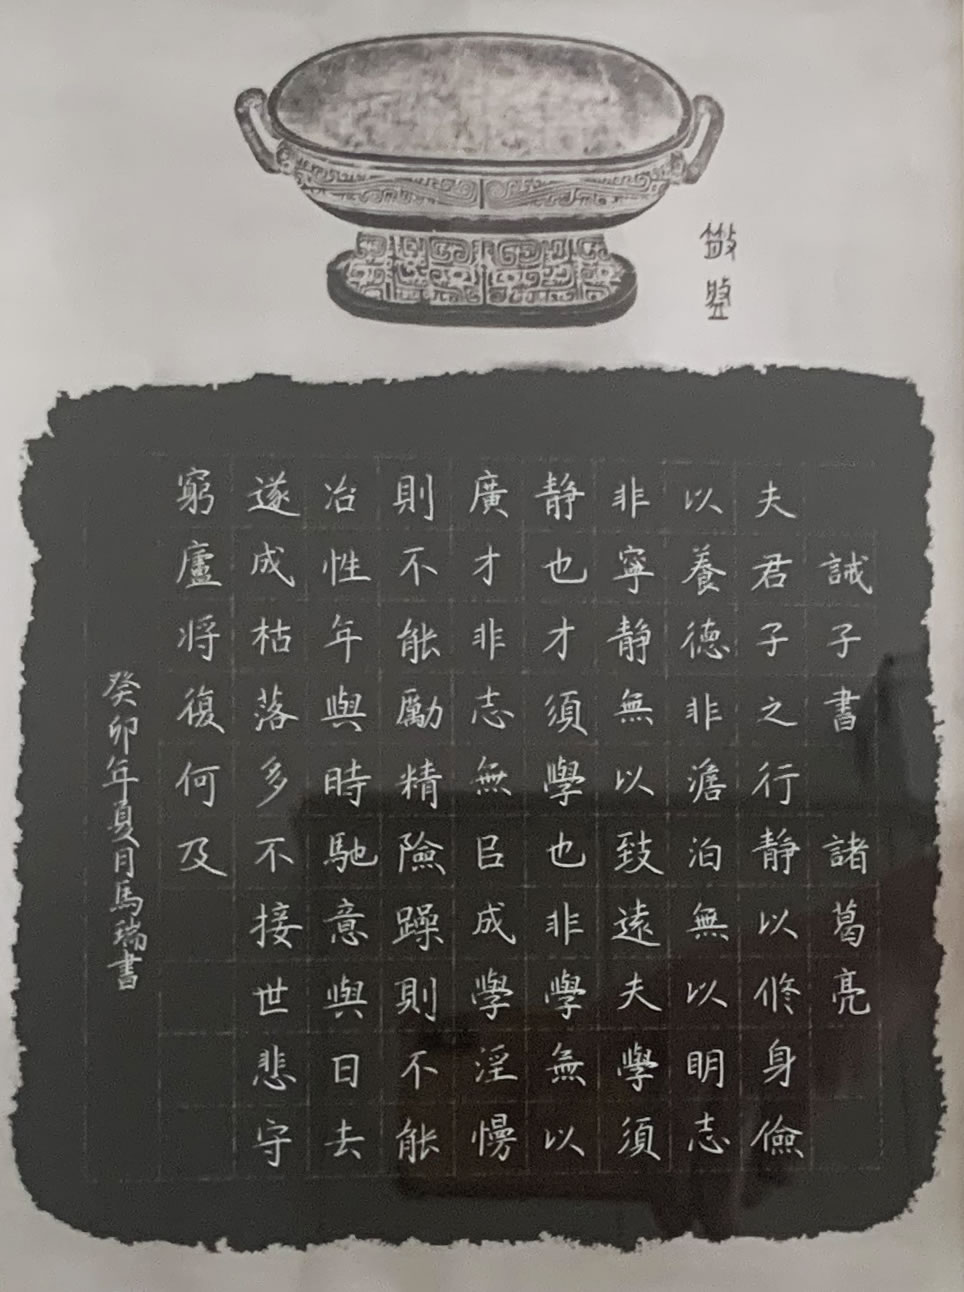 誡子書 諸葛亮
夫君子之行静以修身儉
以養徳非澹泊無以明志
非寧静無以致遠夫學須
静也才須學也非學無以
廣才非志無㠯成學淫慢
則不能勵精險躁則不能
冶性年與時馳意與日去
遂成枯落多不接世悲守
窮廬将復何及
癸卯年夏月馬瑞書